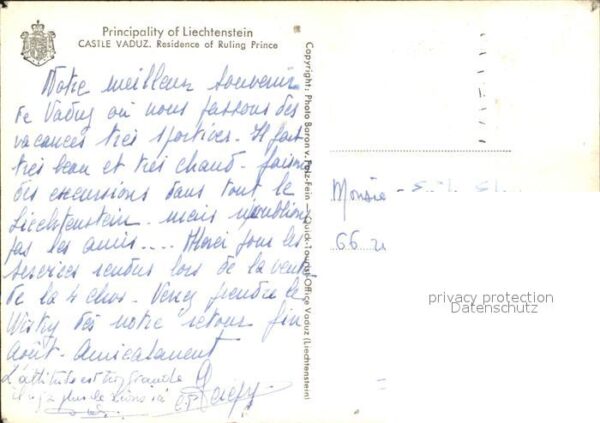 Principality of Liechtenstein
CASTLE VADUZ. Residence of Ruling Prince
Notre meilleur souvenir
de Vaduz où nous passons des
vacances très sportives. Il fait
très beau et très chaud. faisons
des excursions dans tout le
Liechtenstein. mais n'oublions
pas les amis.... Merci pour les
services rendus lors de la vente
de la 4 chvs. Venez prendre le
Wisky dès notre retour fin
Août. Amicalement
L'altitude est trop grande
il n'y a plus de
Copyright: Photo Baron v. Falz-Fein — Quick-Tourist-Office Vaduz (Liechtenstein)
Monsie
66
privacy protection
Datenschutz